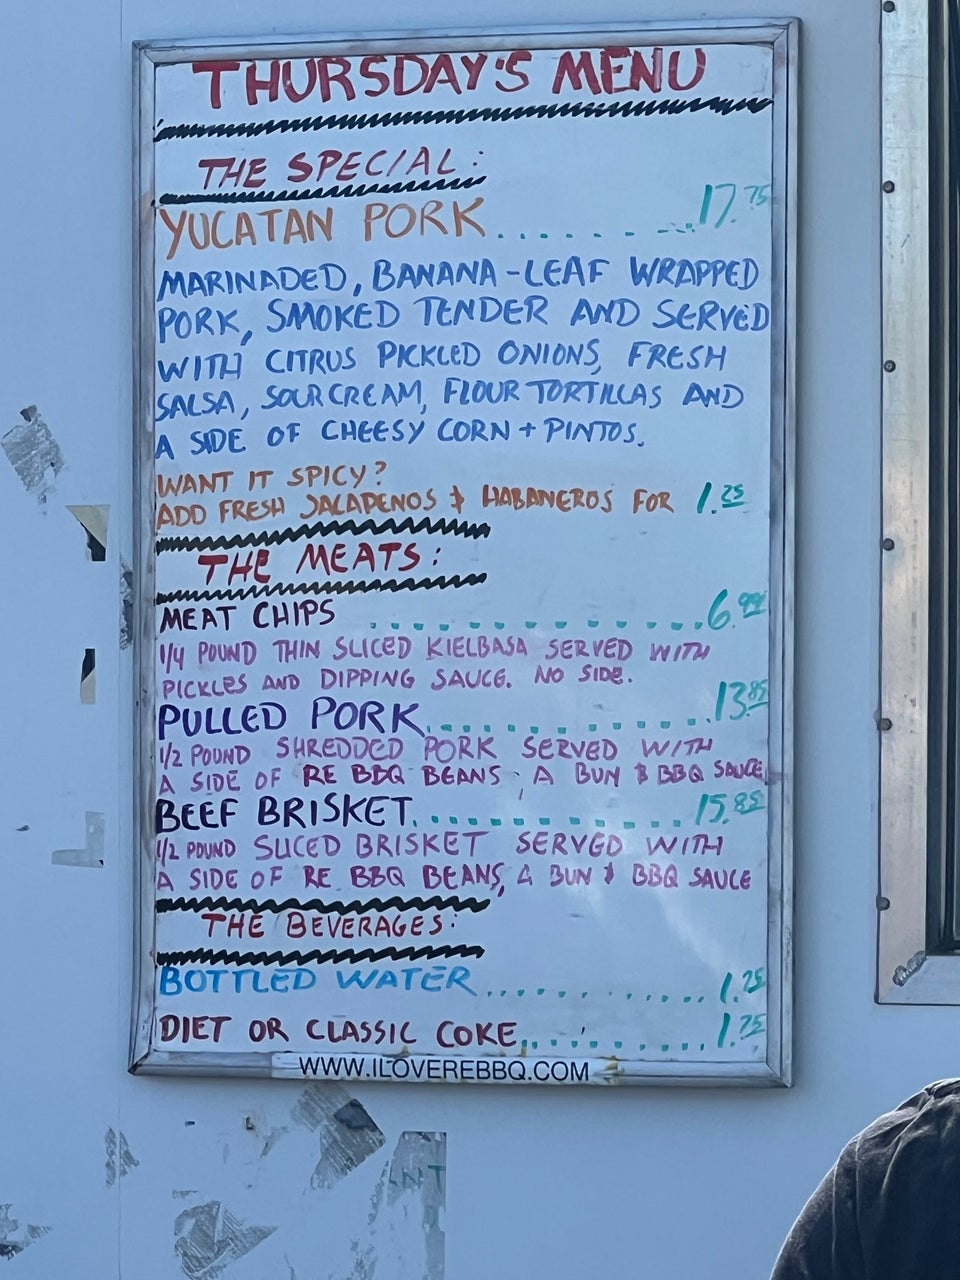 THURSDAY'S MENU
THE SPECIAL:
YUCATAN PORK................17.75
MARINADED, BANANA-LEAF WRAPPED
PORK, SMOKED TENDER AND SERVED
WITH CITRUS PICKLED ONIONS, FRESH
SALSA, SOUR CREAM, FLOUR TORTILLAS AND
A SIDE OF CHEESY CORN + PINTOS.
WANT IT SPICY?
ADD FRESH JALAPENOS & HABANEROS FOR 1.25
THE MEATS:
MEAT CHIPS ................6.99
1/4 POUND THIN SLICED KIELBASA SERVED WITH
PICKLES AND DIPPING SAUCE. NO SIDE.
PULLED PORK................13.85
1/2 POUND SHREDDED PORK SERVED WITH
A SIDE OF RE BBQ BEANS, A BUN & BBQ SAUCE
BEEF BRISKET................15.85
1/2 POUND SLICED BRISKET SERVED WITH
A SIDE OF RE BBQ BEANS, A BUN & BBQ SAUCE
THE BEVERAGES:
BOTTLED WATER................1.25
DIET OR CLASSIC COKE................1.75
WWW.ILOVEREBBQ.COM